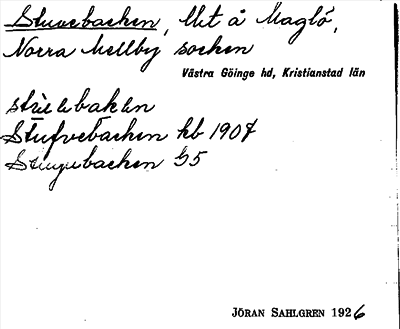 Stuvebacken, lht å Maglö,
Norra Mellby socken
Västra Göinge hd, Kristianstad län
Stufvebacken kb 1907
backen 55
JÖRAN SAHLGREN 1926